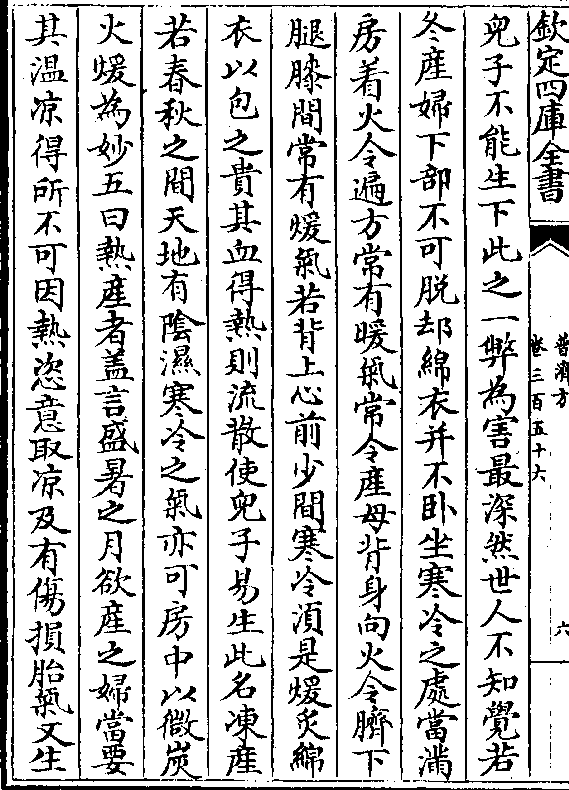 欽定四庫全書
普濟方
卷三百五十六
六
兒子不能生下此之一弊為害最深然世人不知覺若
冬產婦下部不可脱却綿衣并不卧坐寒冷之處當滿
房着火令遍方常有暖氣常令產母背身向火令臍下
腿膝間常有煖氣若背上心前少間寒冷湏是煖炙綿
衣以包之貴其血得熱則流散使兒子易生此名凍產
若春秋之間天地有陰濕寒冷之氣亦可房中以微炭
火煖為妙五曰熱產者盖言盛暑之月欲產之婦當要
其温凉得所不可因熱恣意取凉及有傷損胎氣又生